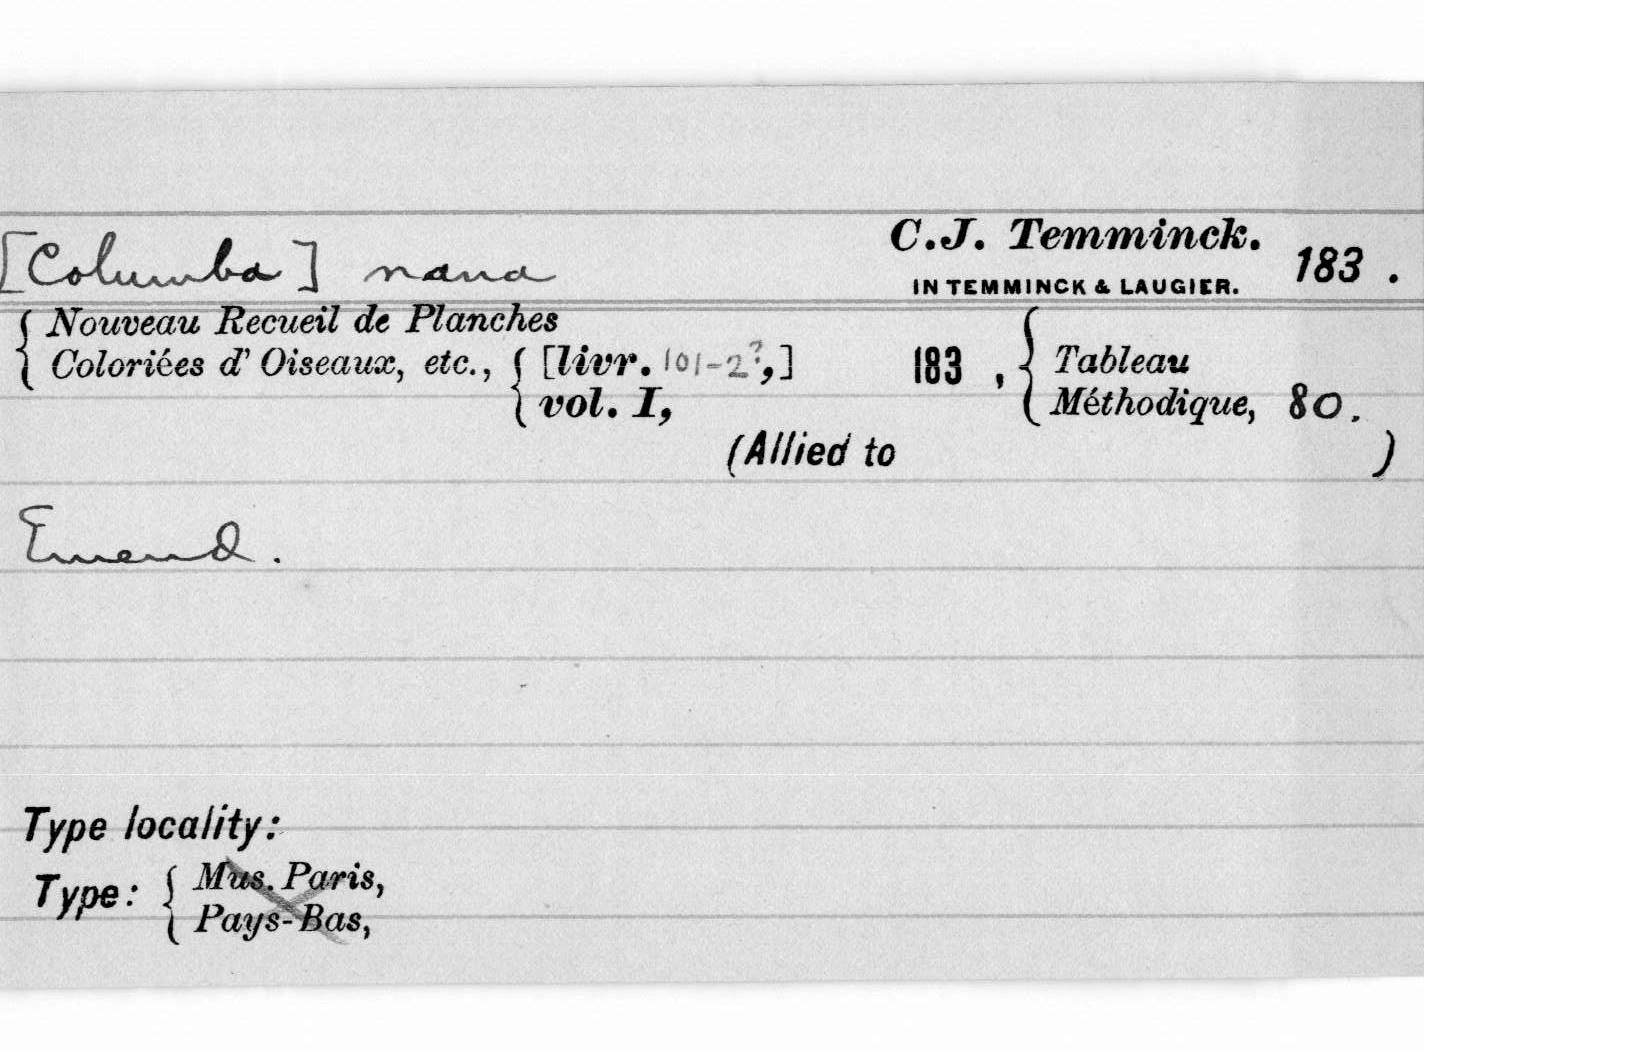 [Columba] nana C.J. Temminck. 183 .
IN TEMMINCK & LAUGIER.
Nouveau Recueil de Planches
Coloriées d' Oiseaux, etc., [livr. 101-2?,] 183 , Tableau
vol. I, Méthodique, 80.
(Allied to )
Emend.
Type locality:
Type: Mus. Paris,
Pays-Bas,